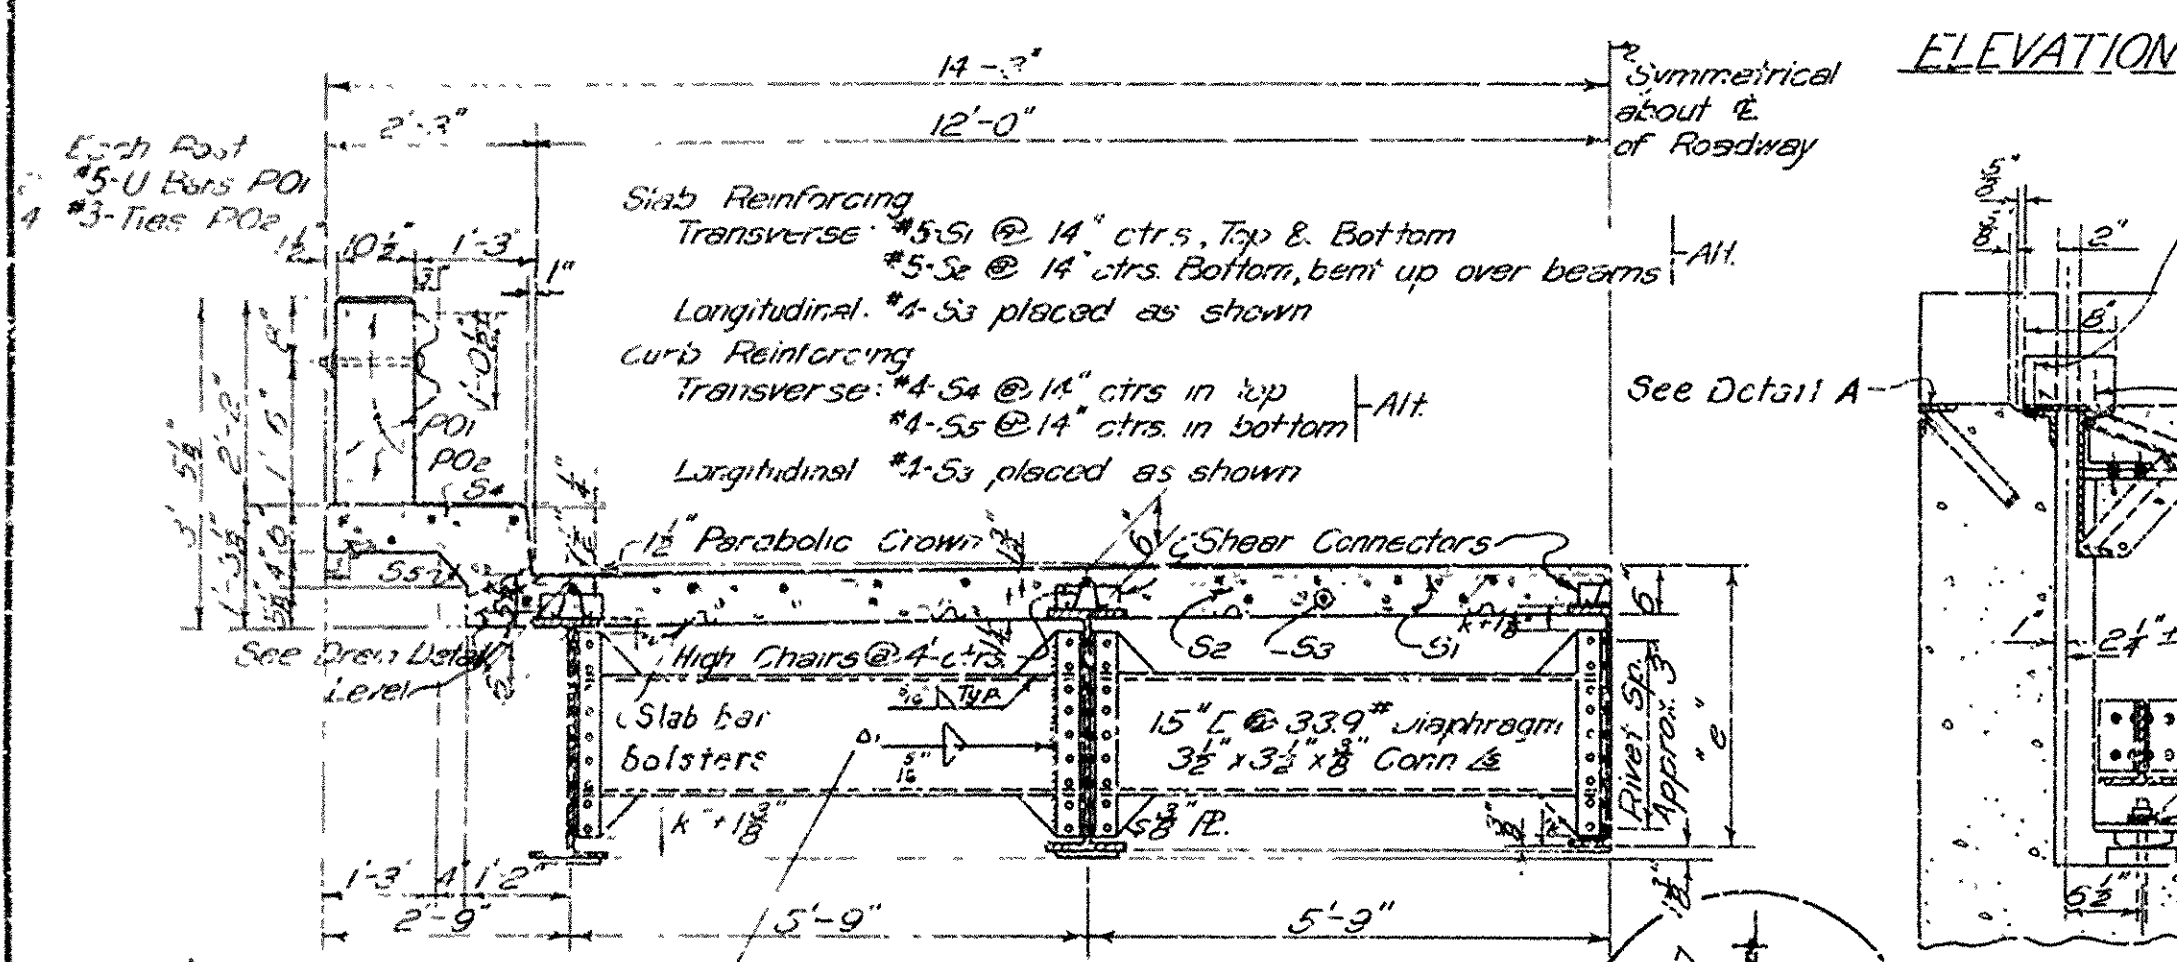 ELEVATION
14'-3"
Symmetrical
about ℄
of Roadway
2'-3"
12'-0"
Each Post
#5-U Bars PO1
4 #3-Ties PO2
1½" 10½" 1'-3"
3"
1"
Slab Reinforcing
Transverse: #5-S1 @ 14" ctrs, Top & Bottom
#5-S2 @ 14" ctrs. Bottom, bent up over beams
Alt.
Longitudinal. #4-S3 placed as shown
Curb Reinforcing
Transverse: #4-S4 @ 14" ctrs in top
#4-S5 @ 14" ctrs. in bottom
Alt.
Longitudinal #4-S3 placed as shown
1'-0½"
PO1
PO2
S4
S5
3' 5¼"
2'-2"
1'-3¼"
See Detail A
2"
8"
1½" Parabolic Crown
6"
Shear Connectors
6"
See Drain Detail
Level
High Chairs @ 4'-ctrs.
S2
S3
S1
k + 1⅛"
5/16" Typ.
Slab bar
bolsters
5/16"
15" [ @ 33.9# Diaphragm
3½" x 3½" x ⅜" Conn. ∠s
Rivet Sp.
Approx. 3"
"e"
k + 1⅜"
⅜" PL.
⅜"
1⅜"
1'-3" 4" 1'-2"
2'-9"
5'-9"
5'-9"
1"
2¼"±
6½"